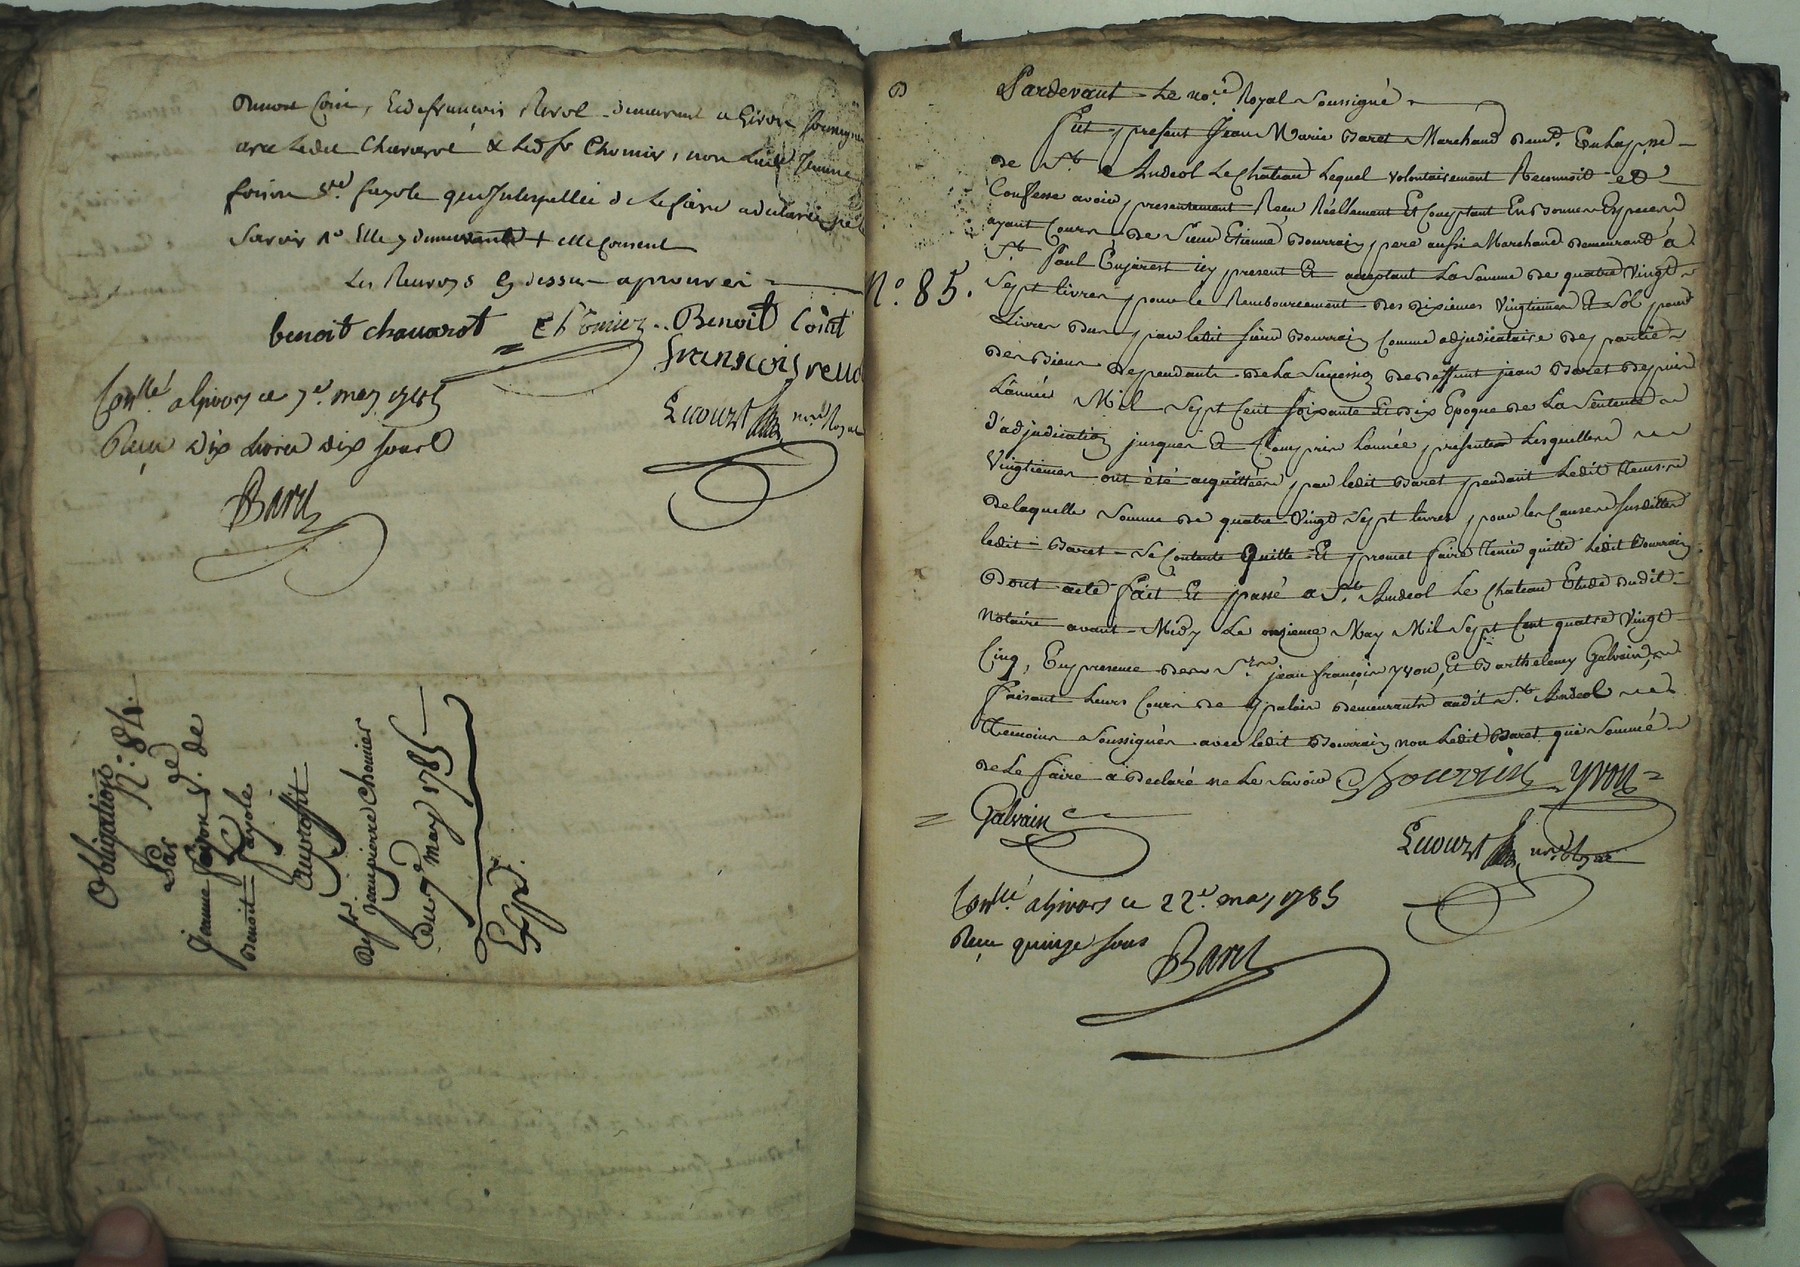 Benoit Coin, & de francois Revol demeurant a Givors soussignes
avec Ledit Chavarot & Led. Sr Chomier, non Ladte Jeanne
foison Ve fayole qui Interpellée de le faire a declaré ne
scavoir Elle demeurante + elle consent
Les Renvoys cy dessus aprouvés
benoit chavarot Chomier Benoit Coint
francois revol
Lecourt nore Royal
Conllé a givors ce 7e may 1785
Reçu dix livres dix sous
Baret
Obligation N.o 84.
Par
Jeanne foison Ve. de
Benoit fayole
Au profit
de sr jean pierre Chomier
Du 7e may 1785
Exp.d
Pardevant Le no.re Royal Soussigné
fut present Jean Marie Baret Marchand dem.t En La p.sse
de St. Andeol Le Chateau Lequel volontairement Reconnoit et
Confesse avoir presentement Reçu Réellement Et Comptant En Bonnes Especes
ayant Cours de Sieur Etienne Bourrin pere aussi Marchand demeurant à
St. Paul Enjarest icy present Et acceptant La Somme de quatre Vingt
N.o 85.
Sept livres pour le Remboursement des dixiemes Vingtiemes Et Sol pour
Livres dus par ledit sieur Bourrin Comme adjudicataire de partie
des Biens dependants de La Succession de deffunt jean Baret depuis
L'année Mil Sept Cent soixante Et dix Epoque de La Sentence
d'adjudication jusques Et Compris L'année presente Lesquelles
Vingtiemes ont été acquittées par ledit Baret pendant Ledit tems
de laquelle Somme de quatre Vingt Sept livres pour les Causes susdittes
ledit Baret Se Contente Quitte Et promet faire tenir quitte Ledit Bourrin
Dont acte fait Et passé a St. Andeol Le Chateau Etude dudit
Notaire avant Midy Le onzieme May Mil Sept Cent quatre Vingt
Cinq, En presence des Srs jean françois yvon, Et Barthelemy Galvain
faisant Leurs Cours de palais demeurants audit St. Andeol
Temoins Soussignés avec ledit Bourrin non Ledit Baret qui Sommé
de Le faire a declaré ne Le Savoir Bourrin yvon
Galvain
Lecourt nore Royal
Conllé a givors ce 22e may 1785
Reçu quinze sous
Baret